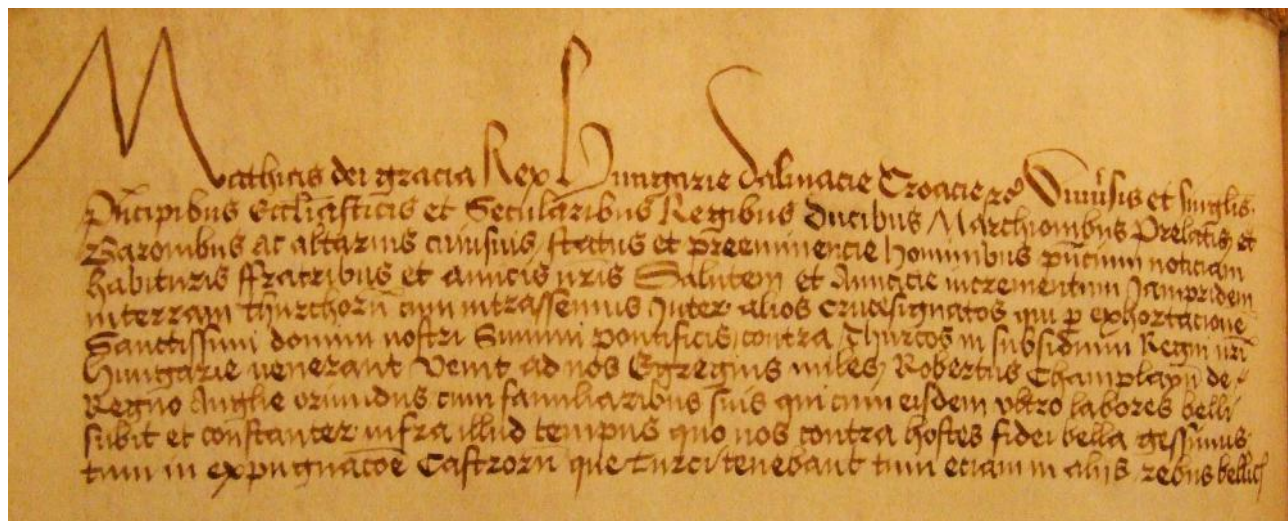 Mathias dei gracia Rex Hungarie Dalmacie Croacie Uniuersis et singlis
Principibus Eccliasticis et Secularibus Regibus Ducibus Marchionibus Prelatis et
Baronibus ac altarius cuiusuis status et preeminencie hominibus pncium noticiam
habituris ffratribus et amicis nris Salutem et Amicicie incrementum Jampridem
interram Thurchoru cum intrassemus Inter alios crucesignatos qui p exhortacione
Sanctissimi domini nostri Summi pontificis contra Thurcos in subsidium Regni nri
Hungarie uenerant Venit ad nos Egregius miles Robertus Champlayn de
Regno Anglie oriundus cum familiaribus suis qui cum eisdem vltro labores belli
subit et constanter infra illud tempus quo nos contra hostes fidei bella gessimus
tum in expugnacoe Castroru que Turci tenebant tum eciam in alijs rebus bellic